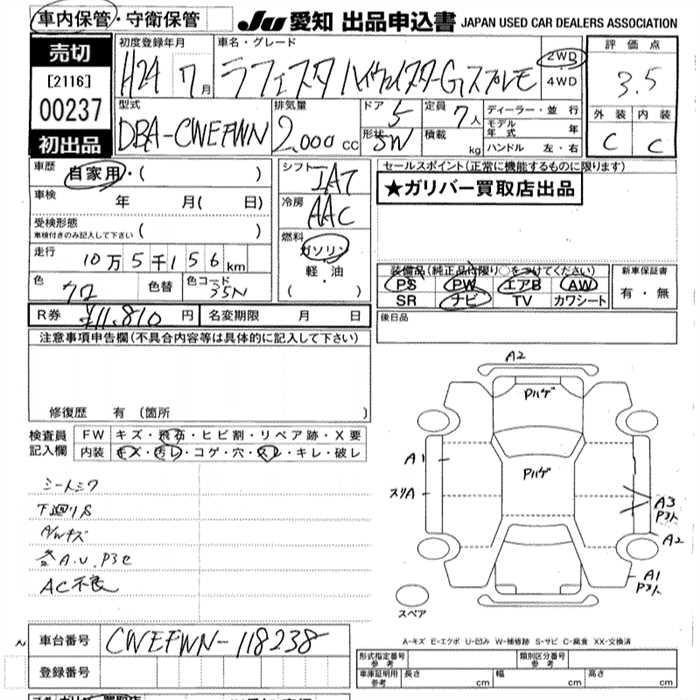 車内保管・守衛保管 JU 愛知 出品申込書 JAPAN USED CAR DEALERS ASSOCIATION
売切
[2116]
00237
初出品
初度登録年月 車名・グレード
H24 7月 ラフェスタ ハイウェイスターGスプレモ 2WD 4WD
評価点
3.5
外装 内装
C C
型式 排気量 ドア 定員 ディーラー・並行
DBA-CWEFWN 2,000cc 5 7人
形状 SW 積載 kg
モデル年式 年
ハンドル 左・右
車歴 自家用・( )
車検 年 月( 日)
受検形態
車検付きのみ記入して下さい ( )
走行 10万5千156km
色 クロ 色替 色コード 35N
シフト IAT
冷房 AAC
燃料
ガソリン
軽・油
( )
セールスポイント(正常に機能するものに限ります)
★ガリバー買取店出品
装備品(純正品に限り○をつけてください)
PS PW エアB AW
SR ナビ TV カワシート
新車保証書
有・無
後日品
R券 ¥11,810円 名変期限 月 日
注意事項申告欄(不具合内容等は具体的に記入して下さい)
修復歴 有(箇所 )
検査員 FW キズ・飛石・ヒビ割・リペア跡・X要
記入欄 内装 キズ・汚レ・コゲ・穴・スレ・キレ・破レ
シートシワ
下廻りS
A/Wキズ
A.U.P3C
AC不良
A2
Pハゲ
Pハゲ
A1
スリA
A3
P3ト
A2
A1
P3ト
スペア
A-キズ E-エクボ U-凹み W-補修跡 S-サビ C-腐食 XX-交換済
車台番号 CWEFWN-118238
登録番号
形式指定番号 参考 類別区分番号 参考
車庫証明用 参考 長さ cm 幅 cm 高さ cm